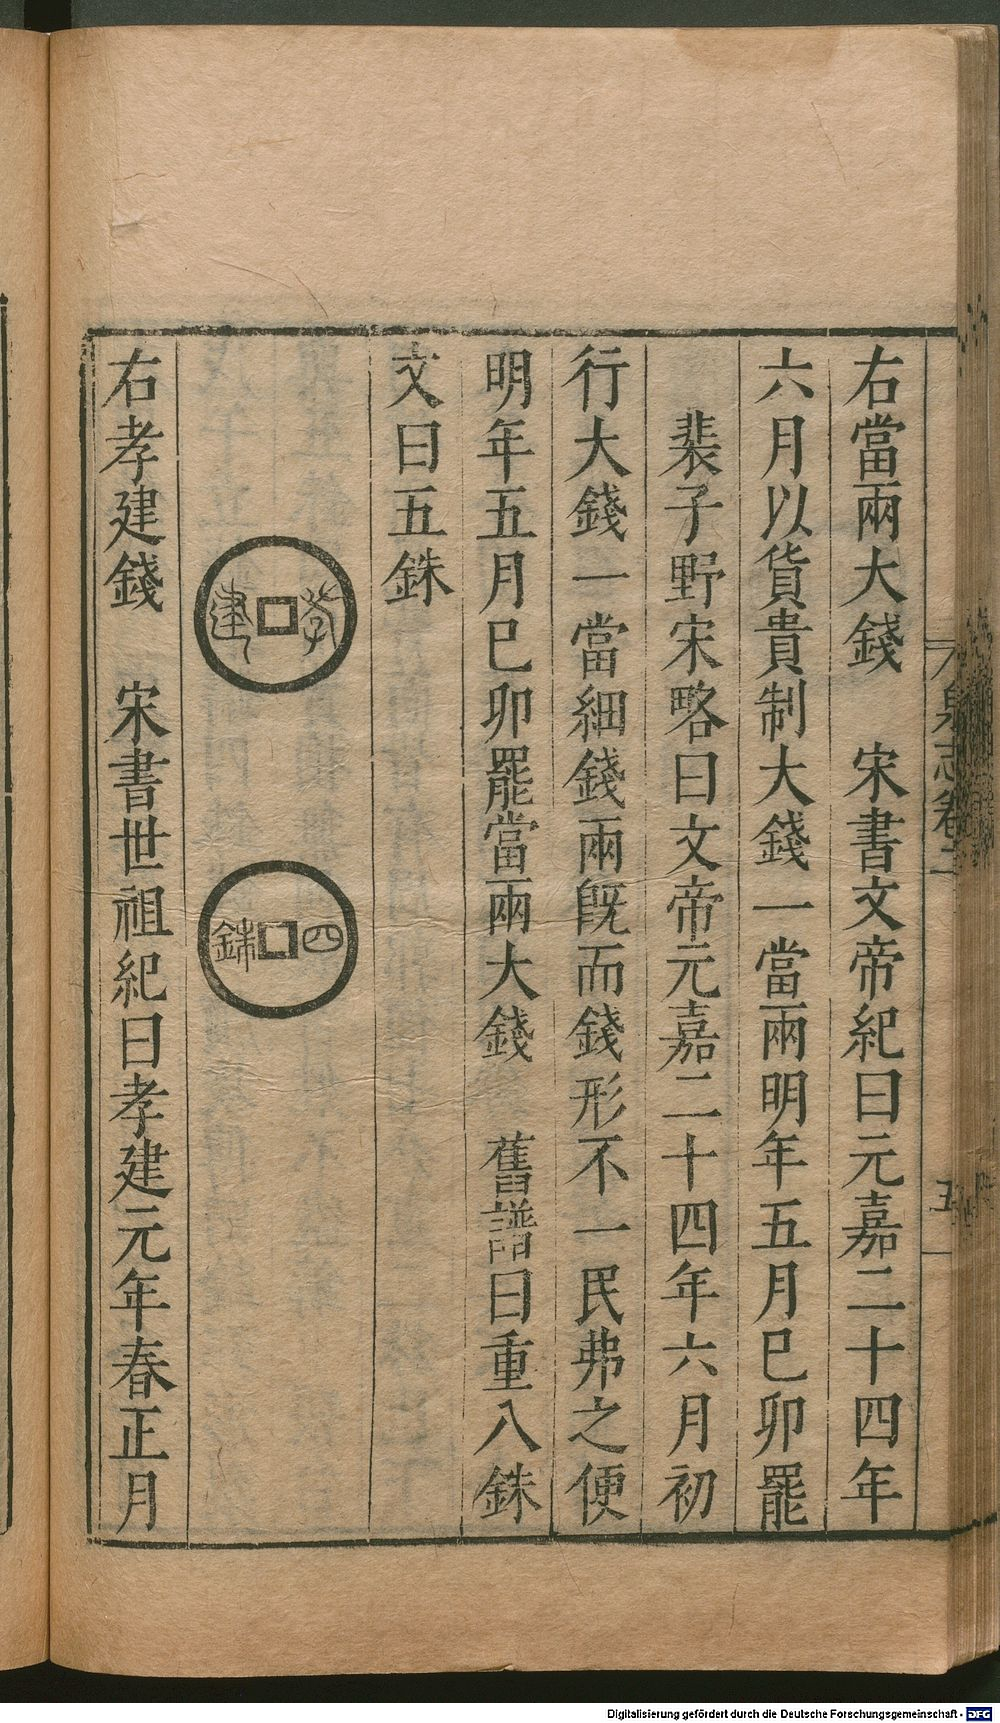 泉志卷二
五
右當兩大錢　宋書文帝紀曰元嘉二十四年
六月以貨貴制大錢一當兩明年五月巳卯罷
裴子野宋略曰文帝元嘉二十四年六月初
行大錢一當細錢兩旣而錢形不一民弗之便
明年五月巳卯罷當兩大錢　舊譜曰重八銖
文曰五銖
孝建
四銖
右孝建錢　宋書世祖紀曰孝建元年春正月
Digitalisierung gefördert durch die Deutsche Forschungsgemeinschaft - DFG